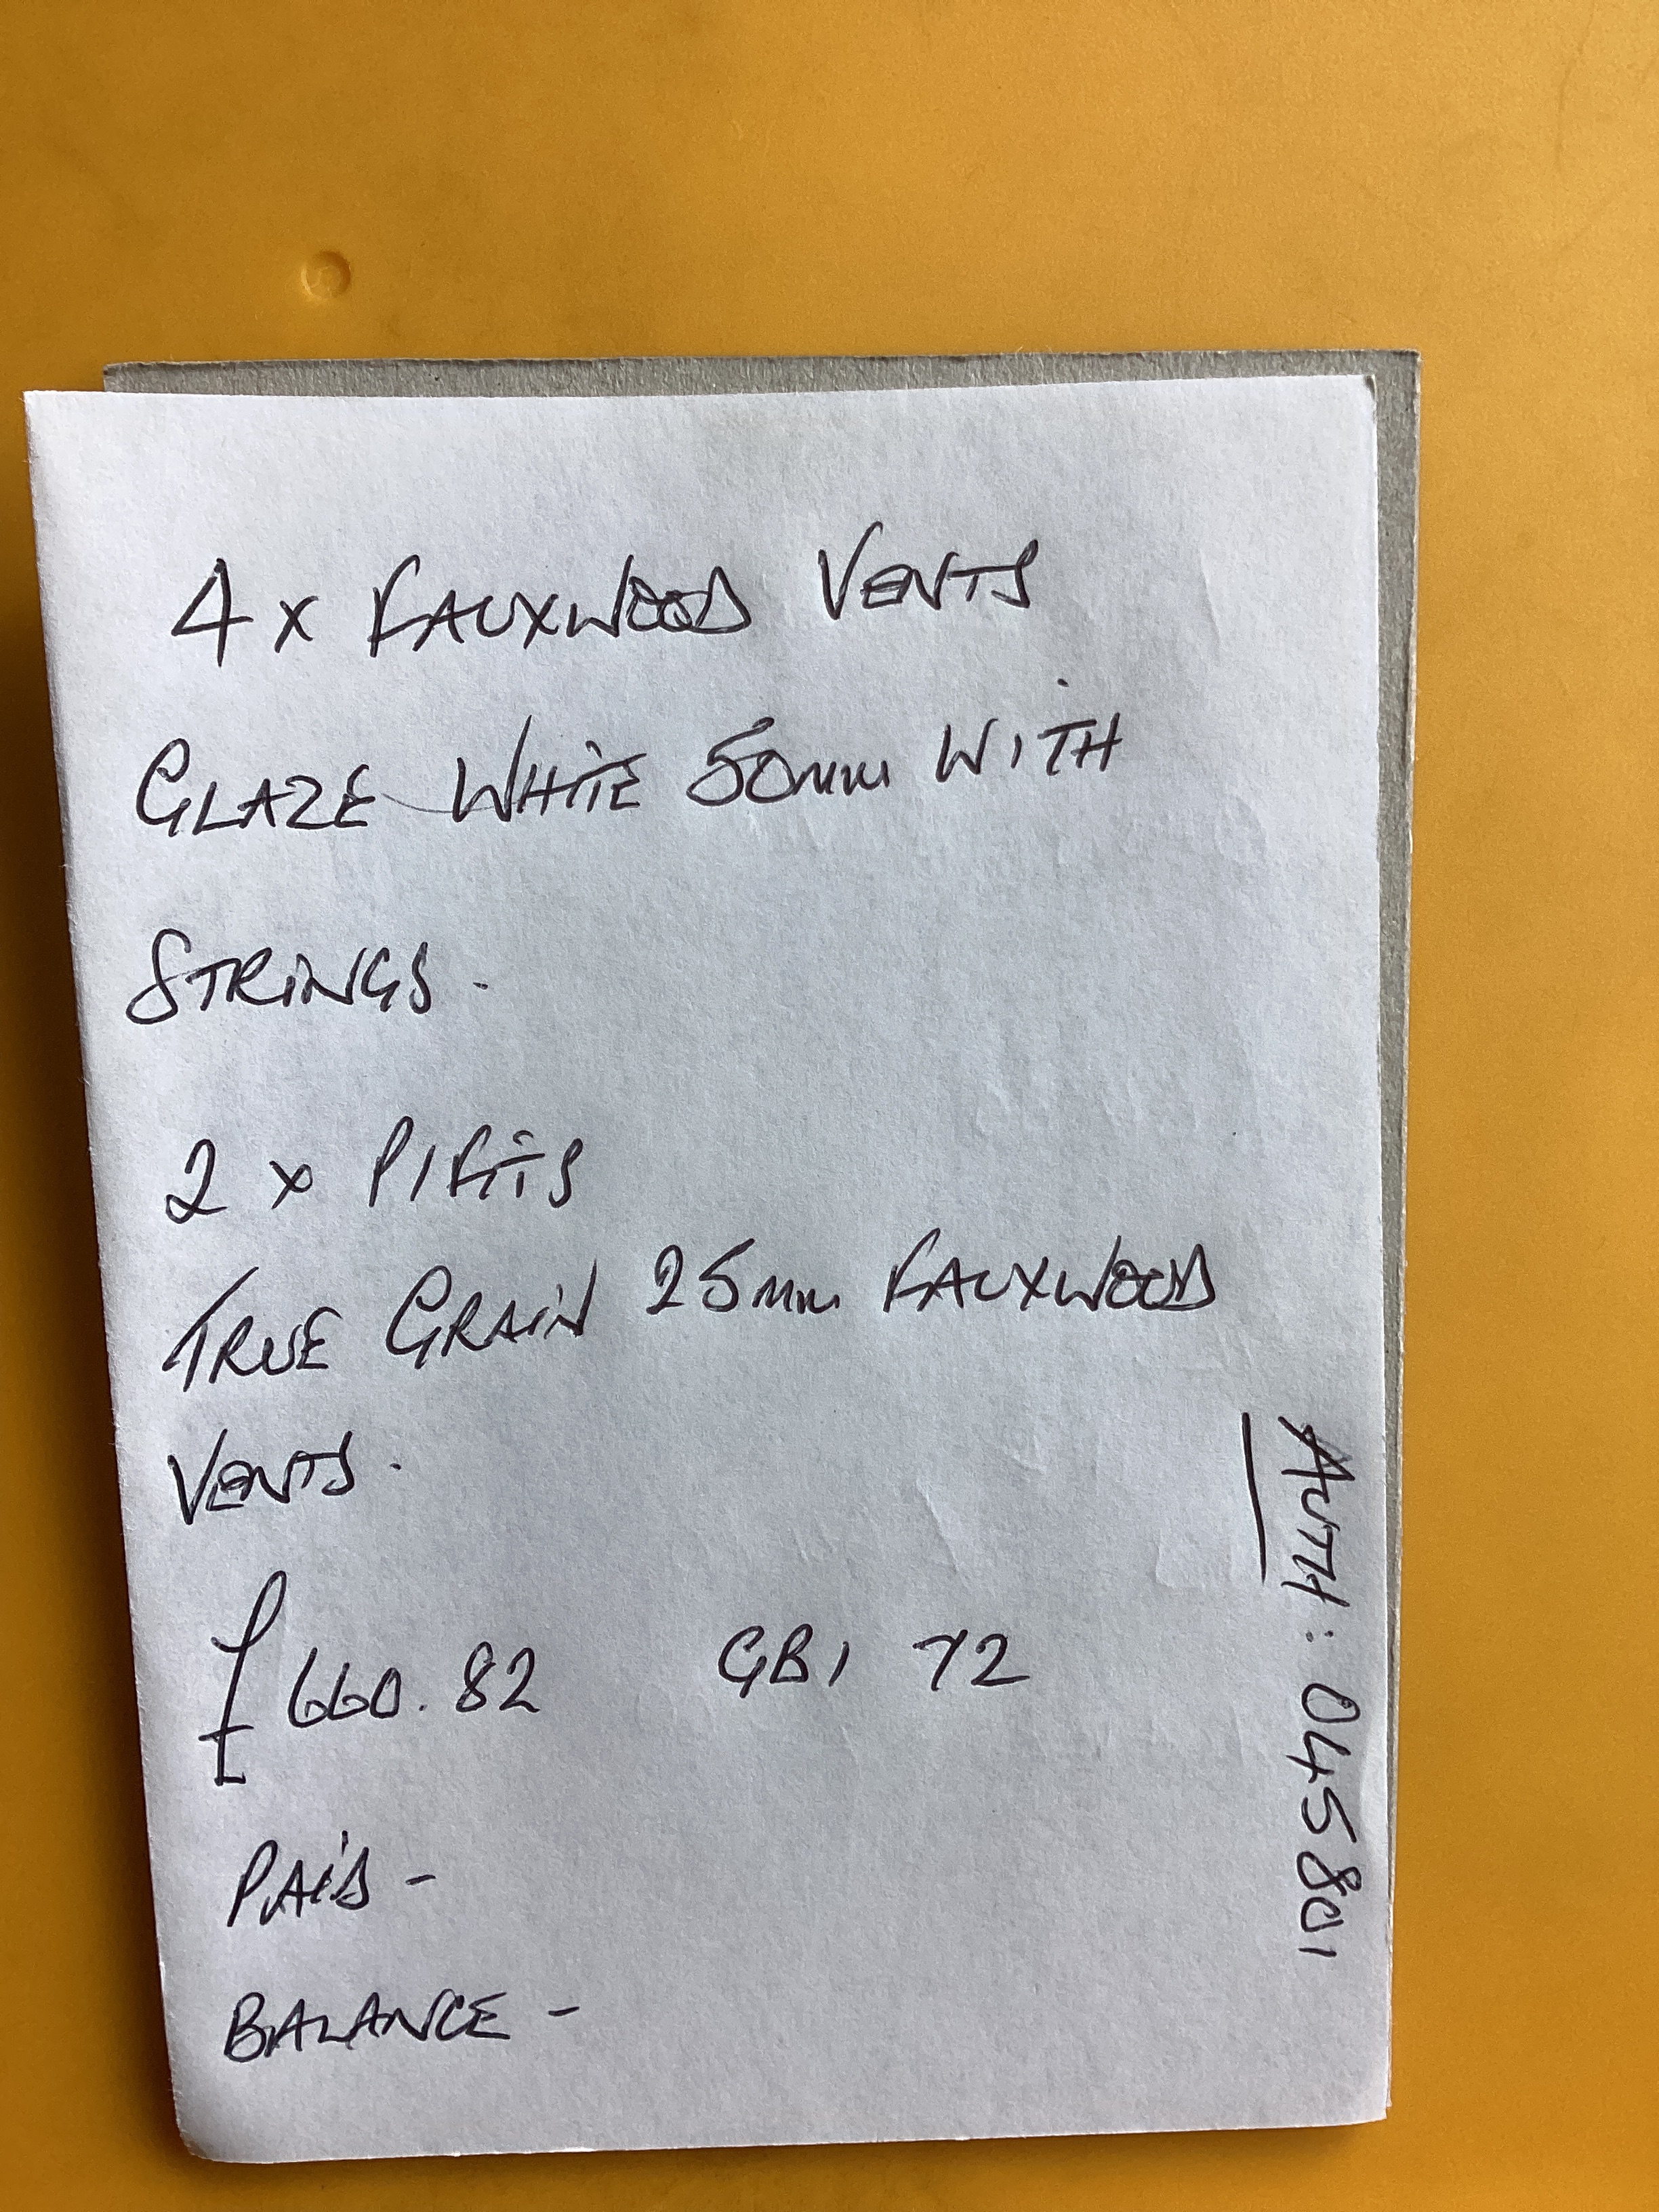 4 x FAUXWOOD VENTS
GLAZE WHITE 50mm WITH
STRINGS.
2 x P/FITS
TRUE GRAIN 25mm FAUXWOOD
VENTS.
£660.82 GB1 72
PAID -
BALANCE -
AUTH: 045801